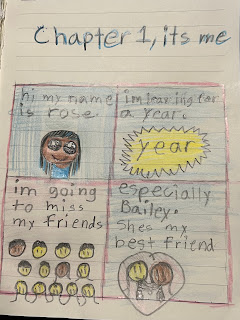 Chapter 1, its me
hi my name
is rose.
im leaving for
a year.
year
im going
to miss
my friends
especially
Bailey.
Shes my
best friend